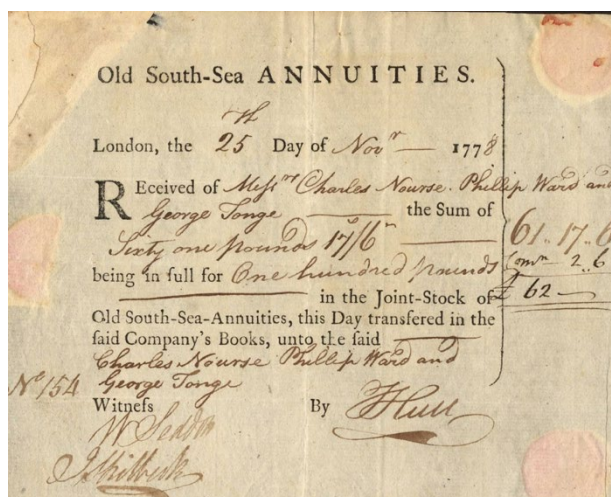 Old South-Sea ANNUITIES.
London, the 25th Day of Novr 1778
REceived of Messrs Charles Nourse Phillip Ward and
George Tonge the Sum of
Sixty one pounds 17/6
being in full for One hundred pounds
in the Joint-Stock of
Old South-Sea-Annuities, this Day transfered in the
said Company's Books, unto the said
Charles Nourse Phillip Ward and
George Tonge
No 154
Witness By FHull
W Seddon
61 .. 17 .. 6
Comn .. 2 .. 6
£ 62